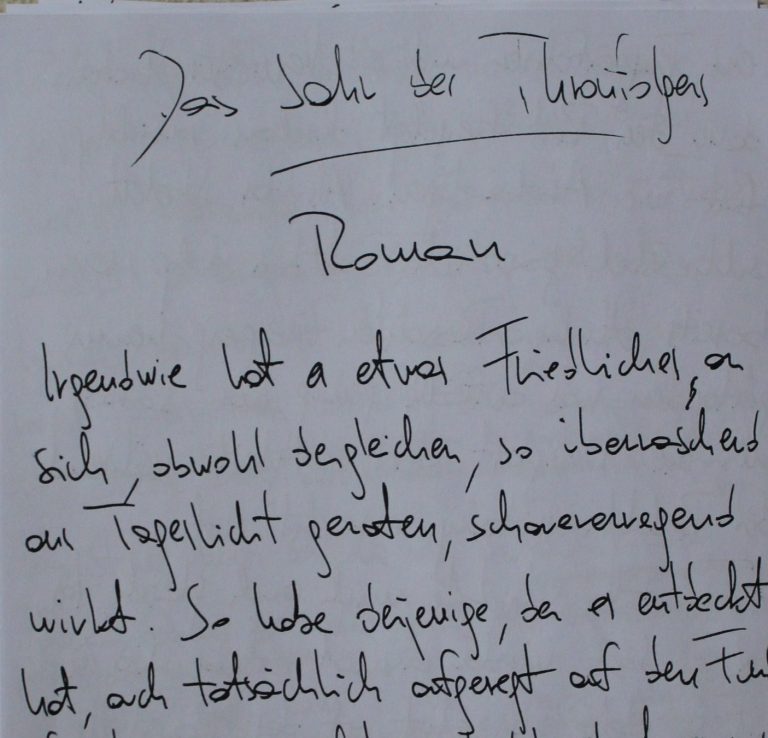 Das Jahr der Thronfolgers
Roman
Irgendwie hat es etwas Friedliches an
sich, obwohl dergleichen, so überraschend
ans Tageslicht geraten, schauererregend
wirkt. So habe derjenige, der es entdeckt
hat, auch tatsächlich aufgeregt auf den